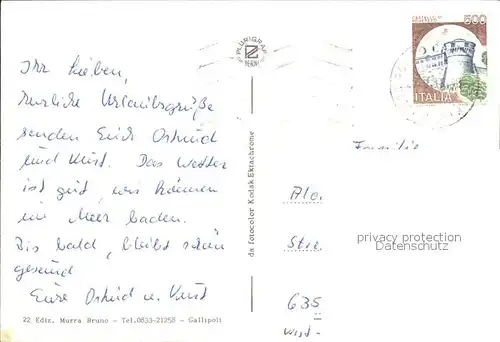 Ihr Lieben,
herzliche Urlaubsgrüße
senden Euch Ostrud
und Kurt. Das Wetter
ist gut, wir können
im Meer baden.
Bis bald, bleibt schön
gesund
Eure Ostrud u. Kurt
22 Ediz. Murra Bruno - Tel.0833-21258 - Gallipoli
da fotocolor Kodak Ektachrome
PLURIGRAF
500
ITALIA
Familie
privacy protection
Datenschutz
635
West-